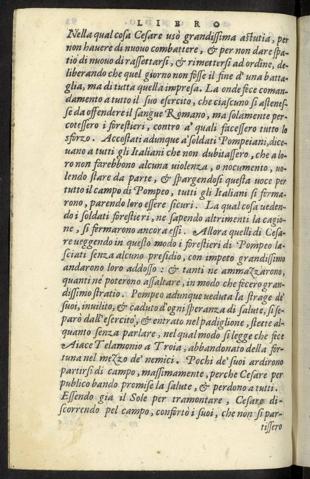 LIBRO
Nella qual cosa Cesare usò grandissima astutia, per
non hauere di nuouo combattere, & per non dare spa-
tio di nuouo di rassettarsi, & rimettersi ad ordine, de-
liberando che quel giorno non fosse il fine d'una batta-
glia, ma di tutta quella impresa. La onde fece coman-
damento a tutto il suo esercito, che ciascuno si astenes-
se da offendere il sangue Romano, ma solamente per-
cotessero i forestieri, contro a' quali facessero tutto lo
sforzo. Accostati adunque a'soldati Pompeiani, dice-
uano a tutti gli Italiani che non dubitassero, che a lo-
ro non farebbono alcuna uiolenza, o nocumento, uo-
lendo stare da parte, & spargendosi questa uoce per
tutto il campo di Pompeo, tutti gli Italiani si ferma-
rono, parendo loro essere sicuri. La qual cosa ueden-
do i soldati forestieri, ne sapendo altrimenti la cagio-
ne, si fermarono ancora essi. Allora quelli di Cesa-
re ueggendo in questo modo i forestieri di Pompeo la-
sciati senza alcuno presidio, con impeto grandissimo
andarono loro addosso: & tanti ne ammazzarono,
quanti ne poterono assaltare, in modo che fecero gran-
dissimo stratio. Pompeo adunque ueduta la strage de'
suoi, inuilito, & caduto d'ogni speranza di salute, si se-
parò dall'esercito, & entrato nel padiglione, stette al-
quanto senza parlare, nel qual modo si legge che fece
Aiace Telamonio a Troia, abbandonato della for-
tuna nel mezzo de' nemici. Pochi de' suoi ardirono
partirsi di campo, massimamente, perche Cesare per
publico bando promise la salute, & perdono a tutti.
Essendo gia il Sole per tramontare, Cesare di-
scorrendo pel campo, confortò i suoi, che non si par-
tissero